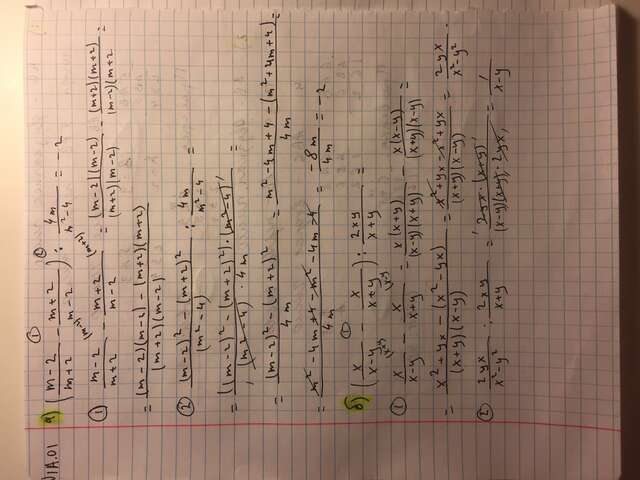 V1A.01 а) ((m-2)/(m+2) ① - (m+2)/(m-2)) ② : 4m/(m²-4) = -2
① (m-2)/(m+2) (m-2) - (m+2)/(m-2) (m+2) = (m-2)(m-2)/(m+2)(m-2) - (m+2)(m+2)/(m-2)(m+2 =
= ((m-2)(m-2) - (m+2)(m+2))/(m+2)(m-2)
② ((m-2)² - (m+2)²)/(m²-4) : 4m/(m²-4) =
= ((m-2)² - (m+2)²)·(m²-4)/(m²-4)·4m =
= ((m-2)² - (m+2)²)/4m = (m²-4m+4-(m²+4m+4))/4m =
= (m²-4m+4-m²-4m-4)/4m = -8m/4m = -2
б) (x/(x-y) ① - x/(x+y)) : 2xy/(x+y) =
① x/(x-y) (x+y - x/(x+y) (x-y = x(x+y)/(x-y)(x+y) - x(x-y)/(x+y)(x-y) =
= (x²+yx-(x²-yx))/(x+y)(x-y) = (x²+yx-x²+yx)/(x+y)(x-y) = 2yx/(x²-y²)
② 2yx/(x²-y²) : 2xy/(x+y) = 2yx·(x+y)/(x-y)(x+y)·2yx = 1/(x-y)